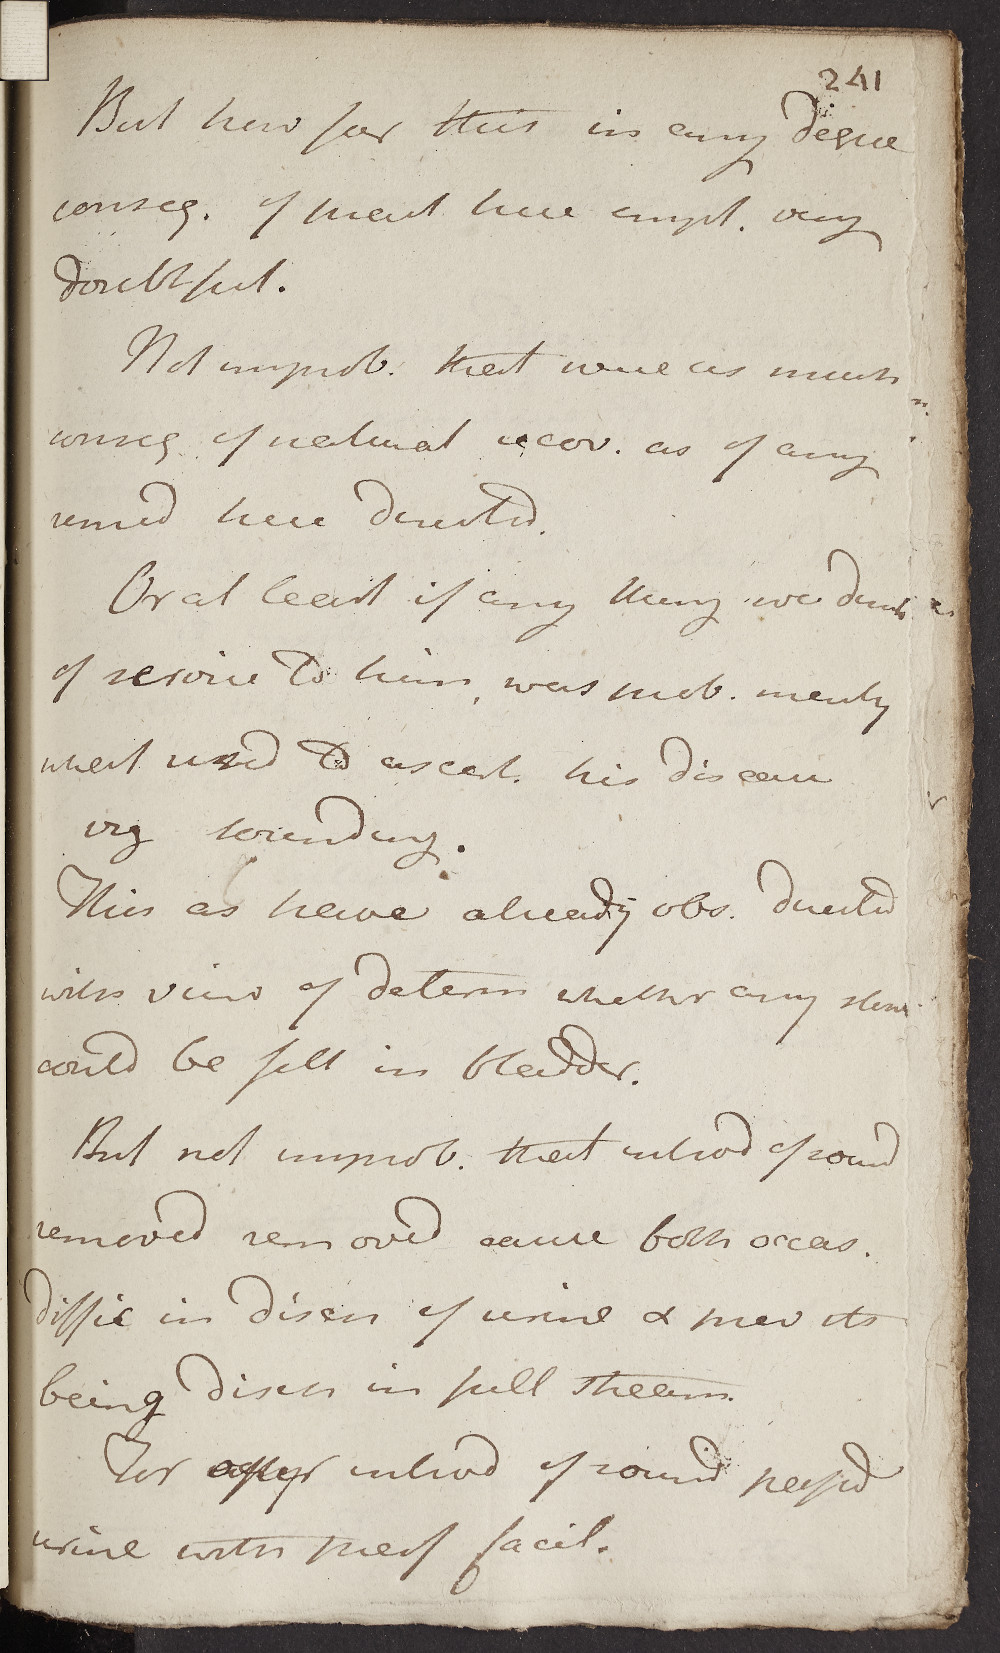 241
But how far this in any degree
conseq. of pract here empl. very
doubtful.
Not improb. that were as much
conseq of natural recov. as of any
remed here directed.
Or at least if any thing we direct
of service to him, was prob. merely
what used to ascert. his disease
viz sounding.
This as have already obs. directed
with view of determ whether any stone
could be felt in bladder.
But not improb. that introd of sound
removed removed cause both occas.
diffic in disch of urine & prev its
being disch in full stream.
For after introd of sound passed
urine with perf facil.